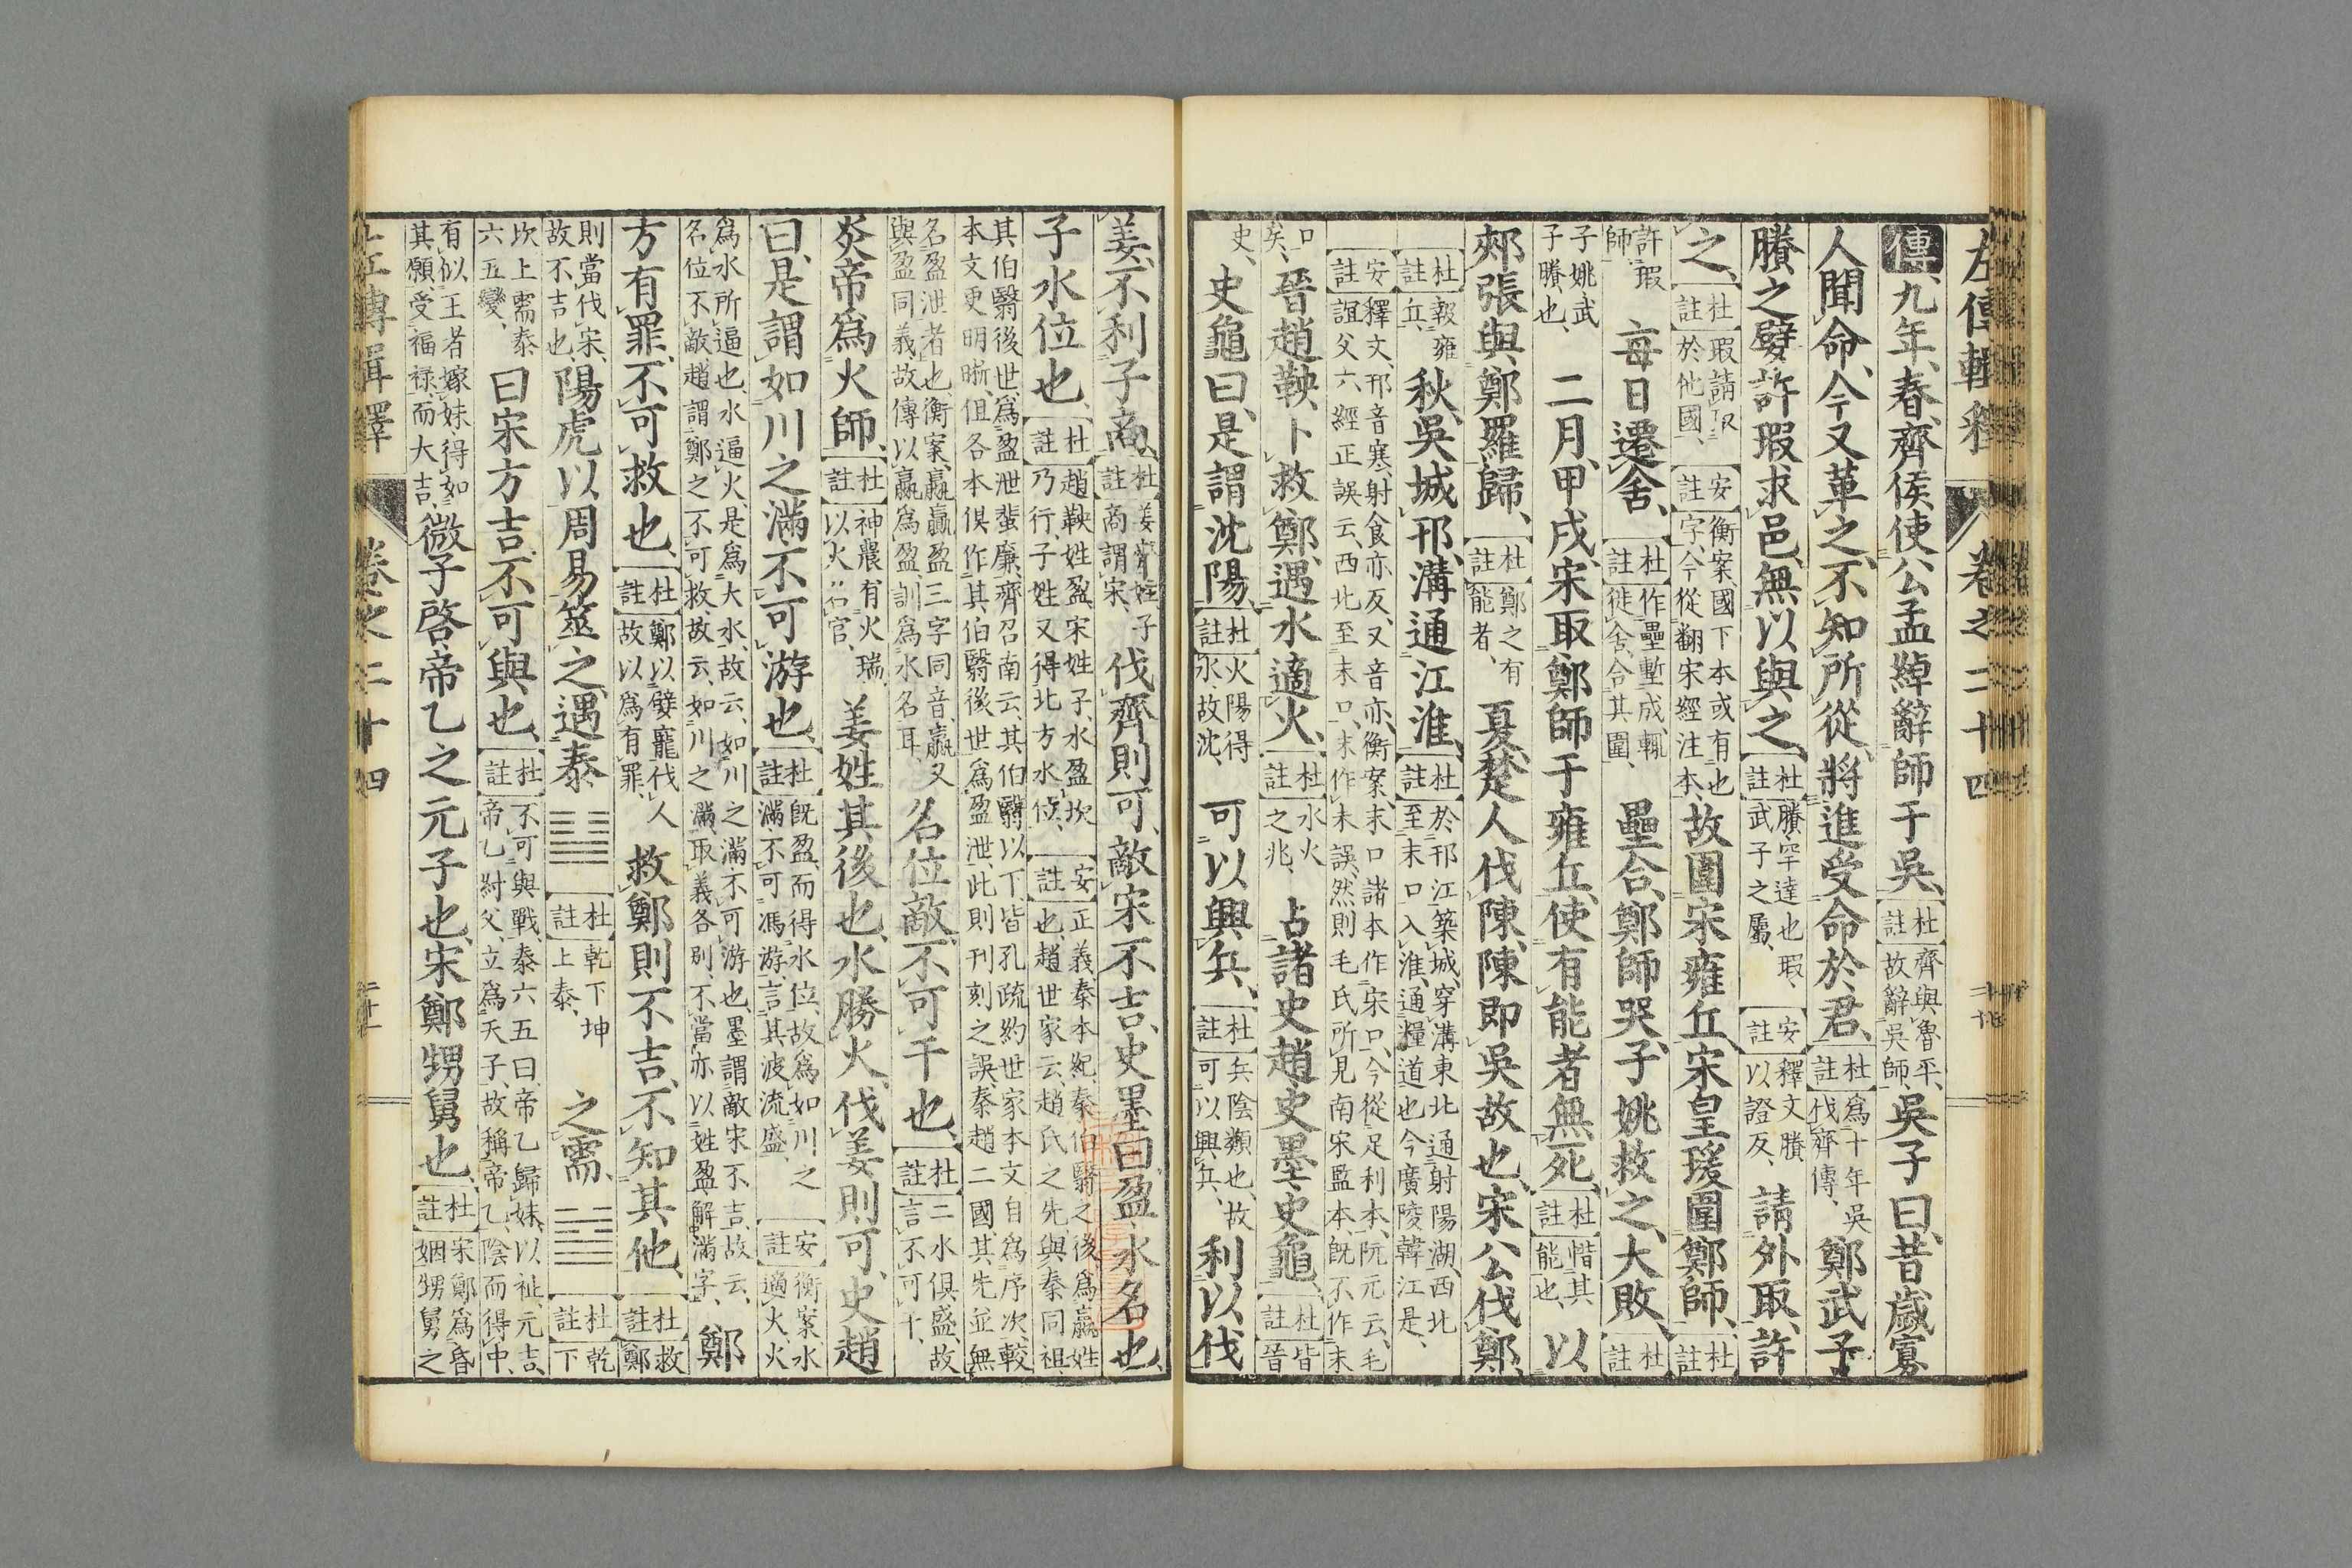 左傳輯釋 卷之二十四
傳九年、春、齊侯使公孟綽辭師于吳、杜註齊與魯平、故辭吳師、吳子曰、昔歲寡
人聞命、今又革之、不知所從、將進受命於君、杜註爲十年吳伐齊傳、鄭武子
賸之嬖許瑕求邑、無以與之、杜註賸、罕達也、瑕、武子之屬、安註釋文、賸以證反、請外取、許
之、杜註瑕請取於他國、安註衡案、國下本或有也字、今從翻宋經注本、故圍宋雍丘、宋皇瑗圍鄭師、杜註
許瑕師、每日遷舍、杜註作壘塹成、輒徙舍、合其圍、壘合、鄭師哭、子姚救之、大敗、杜註
子姚、武子賸也、二月、甲戌、宋取鄭師于雍丘、使有能者無死、杜註惜其能也、以
郟張與鄭羅歸、杜註鄭之有能者、夏、楚人伐陳、陳即吳故也、宋公伐鄭、
杜註報雍丘、秋、吳城邗、溝通江淮、杜註於邗江築城、穿溝東北通射陽湖、西北至末口入淮、通糧道也、今廣陵韓江是、
安註釋文、邗音寒、射食亦反、又音亦、衡案、末口諸本作宋口、今從足利本、阮元云、毛誼父六經正誤云、西北至末口、末作未誤、然則毛氏所見南宋監本、既不作末
口矣、晉趙鞅卜救鄭、遇水適火、杜註水火之兆、占諸史趙、史墨、史龜、杜註皆晉
史、史龜曰、是謂沈陽、杜註火陽得水故沈、可以興兵、杜註兵陰類也、故可以興兵、利以伐
姜、不利子商、杜註姜、齊姓、子商謂宋、伐齊則可、敵宋不吉、史墨曰、盈、水名也、
子、水位也、杜註趙鞅姓盈、宋姓子、水盈坎乃行、子姓又得北方水位、安註正義、秦本紀、秦伯翳之後爲嬴姓也、趙世家云、趙氏之先與秦同祖、
其伯翳後世爲盈泄蜚廉、齊召南云、其伯翳以下皆孔疏約世家本文、自爲序次、較本文更明晰、但各本俱作其伯翳後世爲盈泄、此則刊刻之誤、秦趙二國其先並無
名盈泄者也、衡案、嬴嬴盈三字同音、嬴又與盈同義、故傳以嬴爲盈、訓爲水名耳、名位敵、不可干也、杜註二水俱盛、故言不可干、
炎帝爲火師、杜註神農有火瑞、以火名官、姜姓其後也、水勝火、伐姜則可、史趙
曰、是謂如川之滿、不可游也、杜註既盈而得水位、故爲如川之滿、不可馮游、言其波流盛、安註衡案、水適火、火
爲水所逼也、水逼火、是爲大水、故云如川之滿、不可游也、墨謂敵宋不吉、故云名位不敵、趙謂鄭之不可救、故云如川之滿、取義各別、不當亦以姓盈解滿字、鄭
方有罪、不可救也、杜註鄭以嬖寵伐人、故以爲有罪、救鄭則不吉、不知其他、杜註救鄭
則當伐宋、故不吉也、陽虎以周易筮之、遇泰䷊、杜註乾下坤上泰、之需、䷄、杜註乾下
坎上需、泰六五變、曰、宋方吉、不可與也、杜註不可與戰、泰六五曰、帝乙歸妹、以祉、元吉、帝乙紂父、立爲天子、故稱帝乙、陰而得中、
有似王者嫁妹、得如其願、受福祿而大吉、微子啓、帝乙之元子也、宋鄭、甥舅也、杜註宋鄭爲昏姻甥舅之
左傳輯釋 卷之二十四